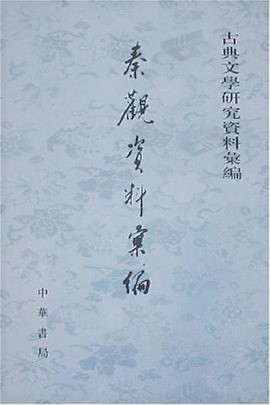 古典文學研究資料彙編
秦觀資料彙編
中華書局